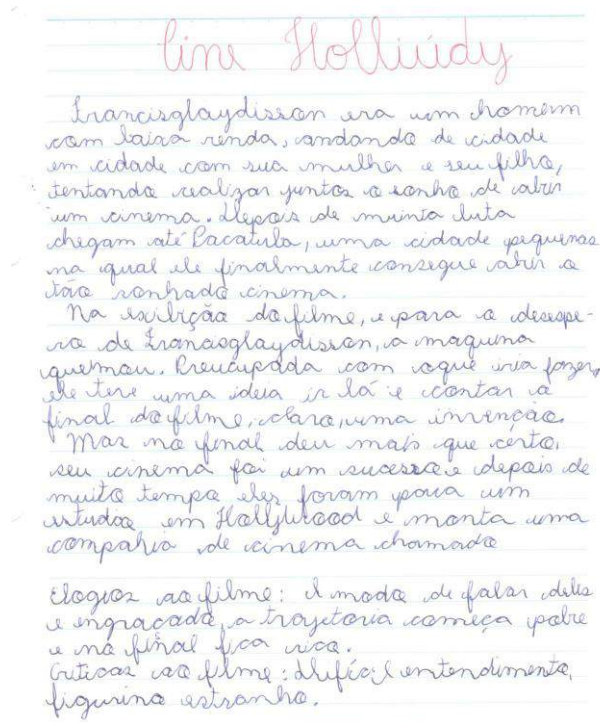 Cine Holliúdy
Francisglaydisson era um homem
com baixa renda, andando de cidade
em cidade com sua mulher e seu filho,
tentando realizar juntos o sonho de abrir
um cinema. Depois de muinta luta
chegam até Pacatuba, uma cidade pequenas
na qual ele finalmente consegue abrir o
tão sonhado cinema.
Na exibição do filme, e para o desespe-
ro de Francisglaydisson, a maquina
queimou. Preucupado com oque iria fazer,
ele teve uma ideia ir lá e contar o
final do filme, claro, uma invenção.
Mas no final deu mais que certo,
seu cinema foi um sucesso e depois de
muito tempo eles foram para um
estudio em Hollywood e monta uma
compahia de cinema chamado
Elogios ao filme: A modo de falar deles
e engraçado, a trajetoria começa pobre
e no final fica rico.
Criticas ao filme: Dificil entendimento,
figurino estranho.